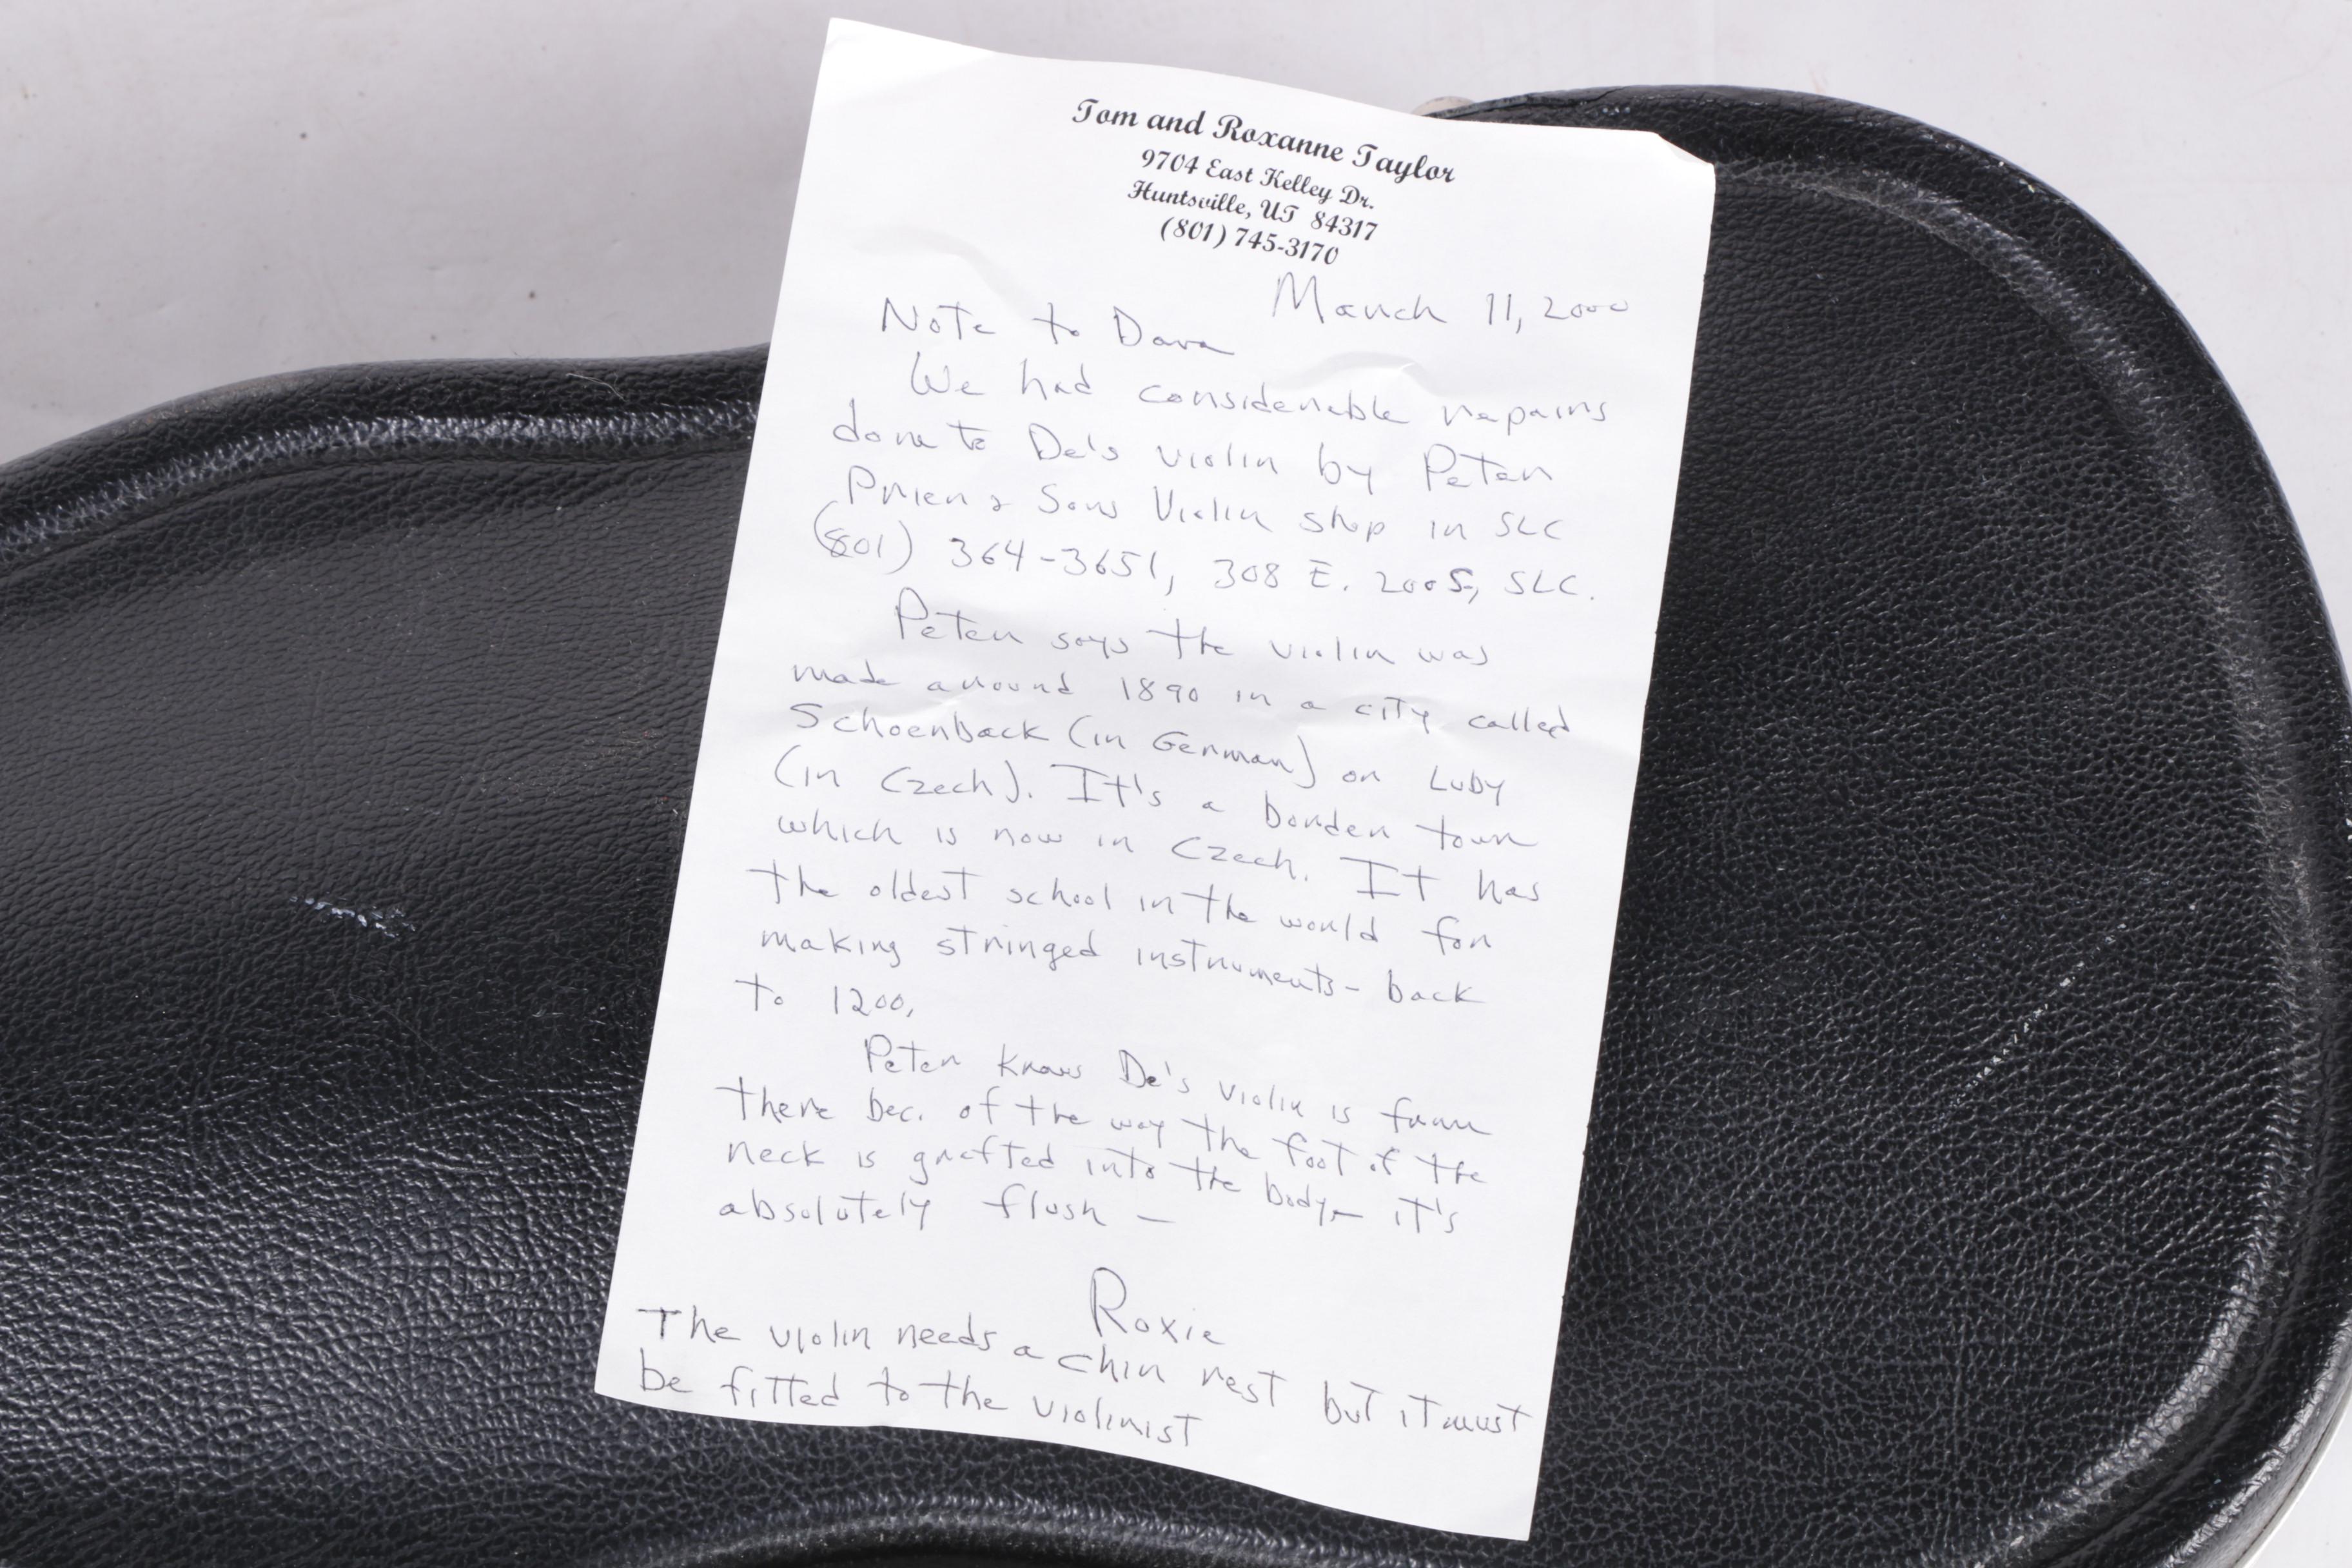 Tom and Roxanne Taylor
9704 East Kelley Dr.
Huntsville, UT 84317
(801) 745-3170
March 11, 2000
Note to Dara
We had considerable repairs
done to De's violin by Peter
Prier & Sons Violin shop in SLC
(801) 364-3651, 308 E. 200 S., SLC.
Peter says the violin was
made around 1890 in a city called
Schoenback (in German) or Luby
(in Czech). It's a border town
which is now in Czech. It has
the oldest school in the world for
making stringed instruments - back
to 1200.
Peter knows De's violin is from
there bec. of the way the foot of the
neck is grafted into the body - it's
absolutely flush -
Roxie
The violin needs a chin rest but it must
be fitted to the violinist